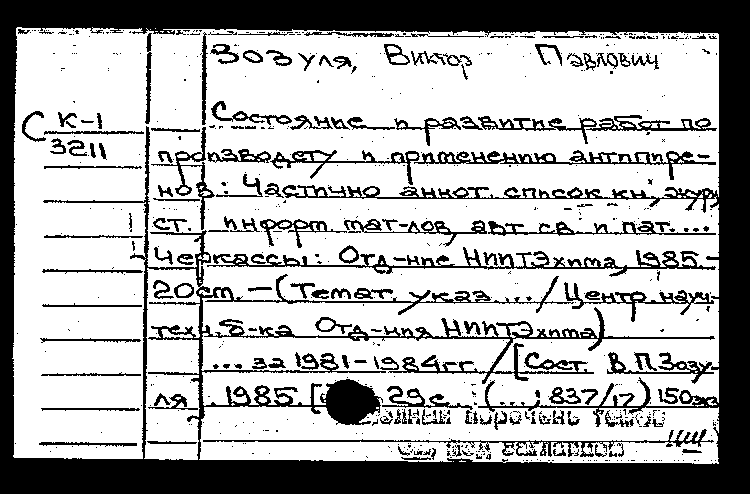 Зозуля, Виктор Павлович
Состояние и развитие работ по
С К-1
3211
производству и применению антипире-
нов: Частично аннот. список кн., журн.
ст. информ. мат-лов, авт. св. и пат....
Черкассы: Отд-ние НИИТЭхима, 1985.-
20см. - (Темат. указ. .../ Центр. науч.-
техн. б-ка Отд-ния НИИТЭхима)
... за 1981-1984гг. / [Сост. В.П.Зозу-
ля] . 1985. [ 29с. (...; 837/17) 150экз
перечень томов
см. под заглавием